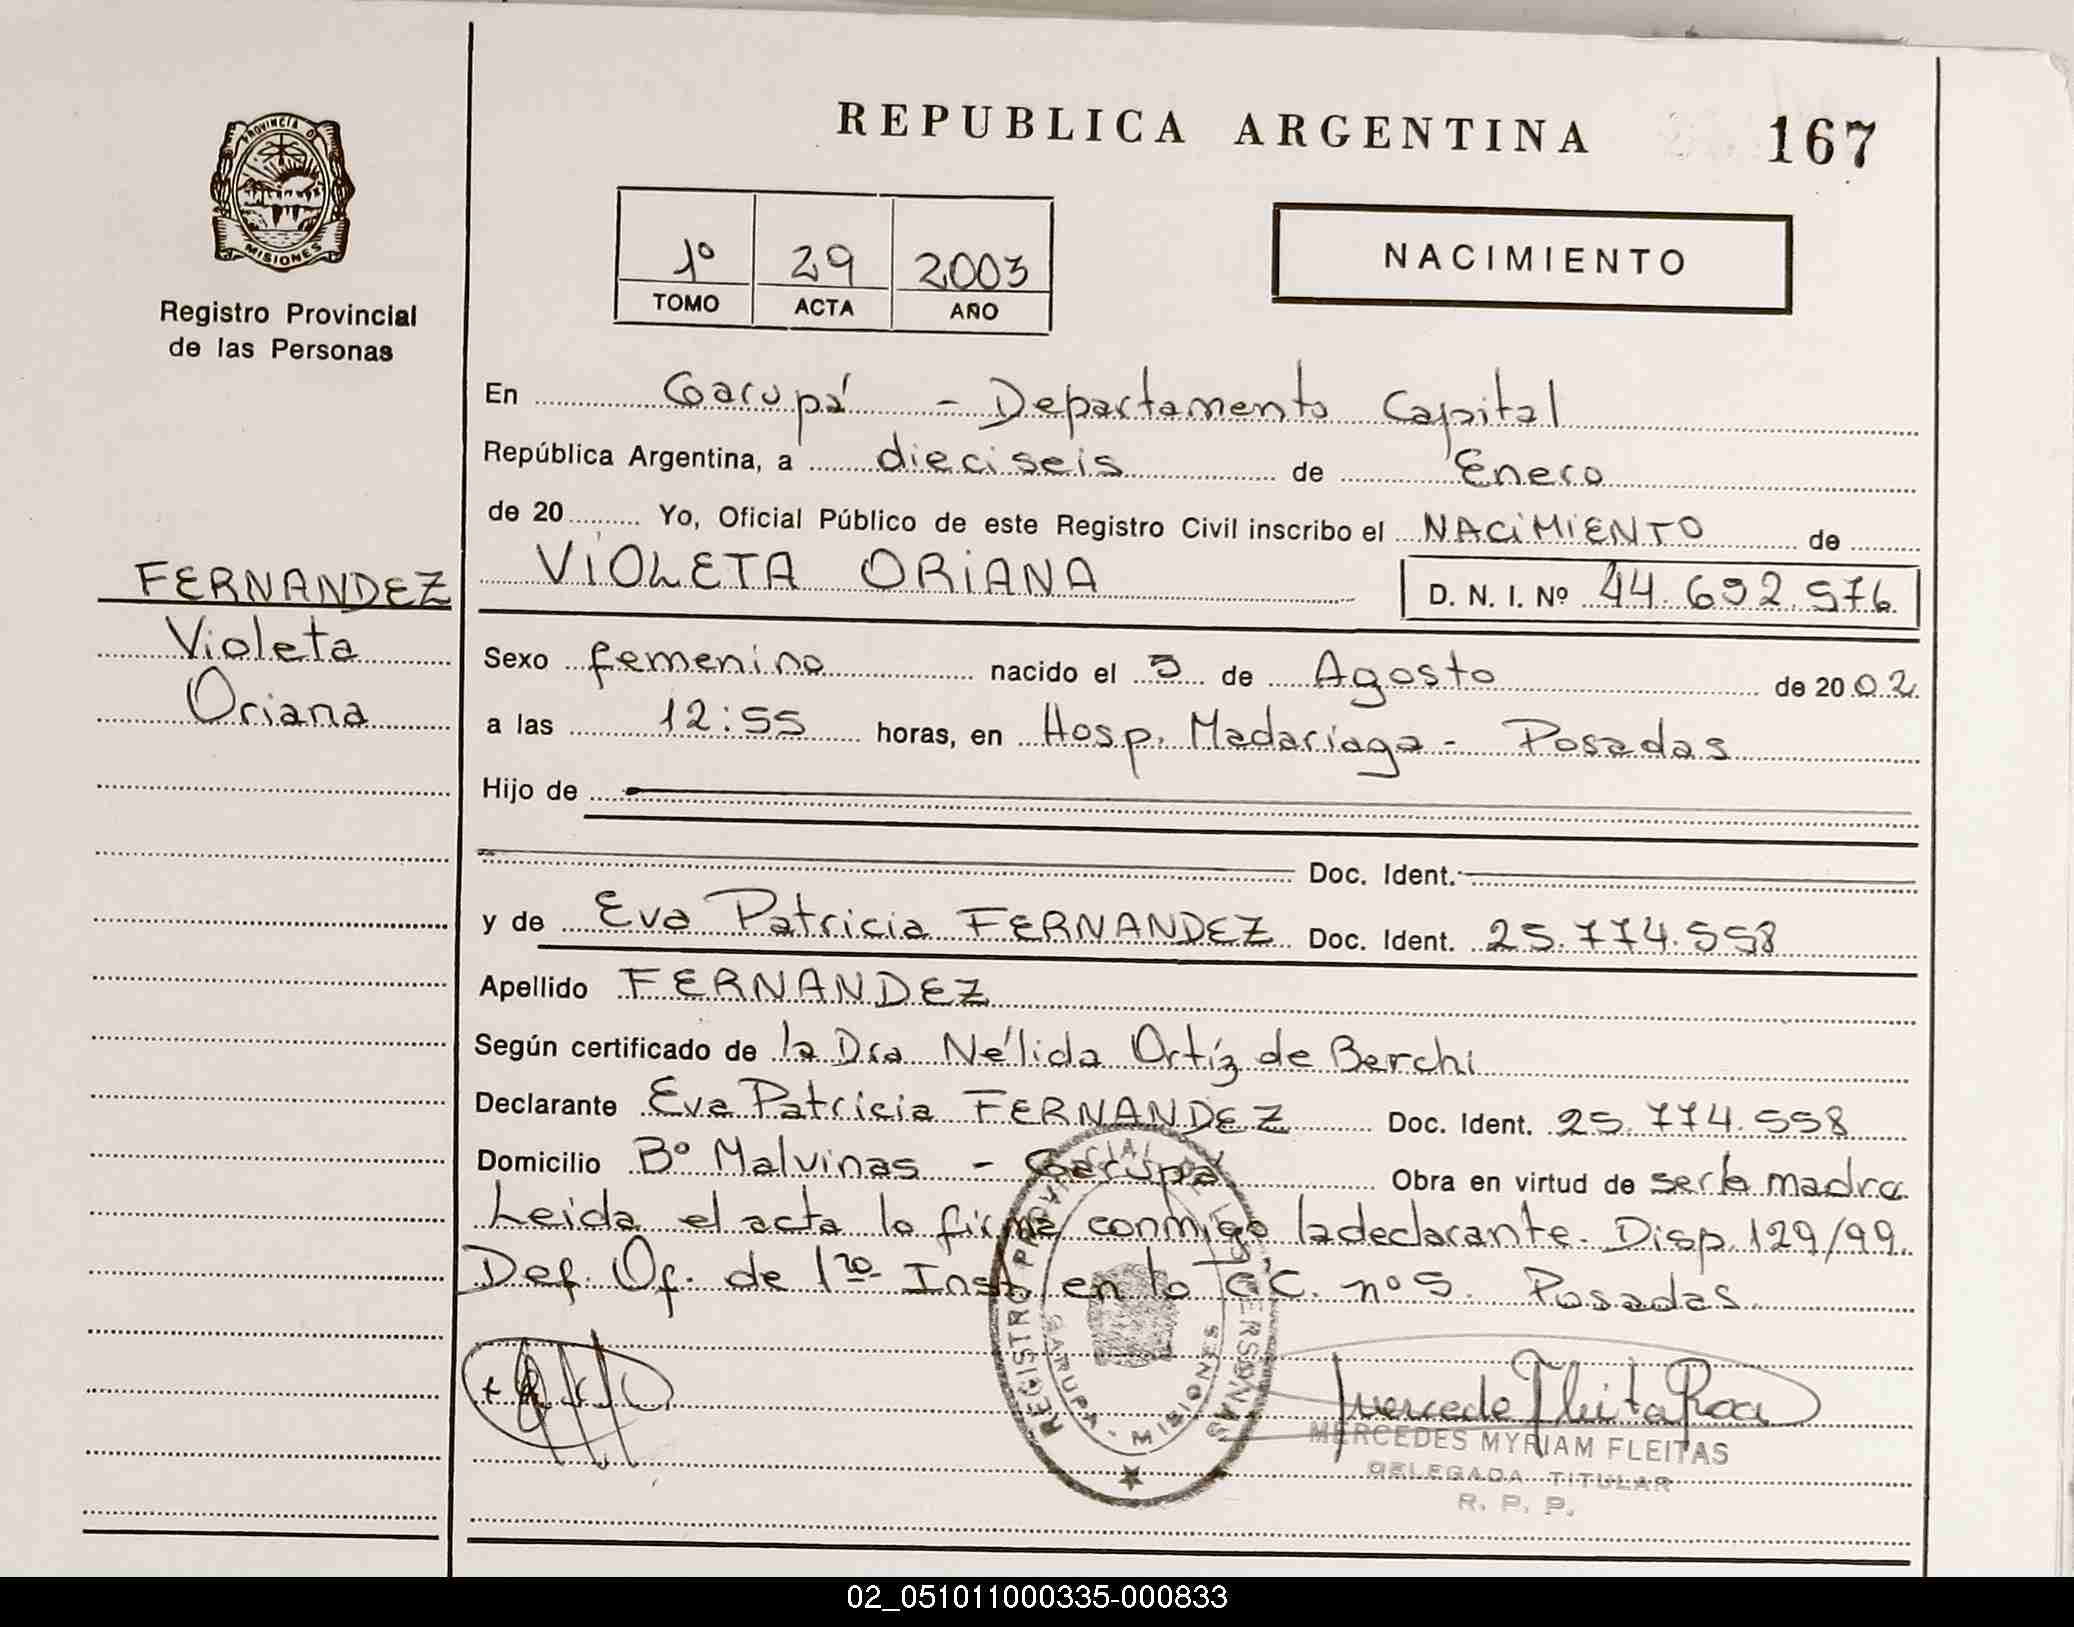 REPUBLICA ARGENTINA
167
PROVINCIA DE
MISIONES
Registro Provincial
de las Personas
1º 29 2003
TOMO ACTA AÑO
NACIMIENTO
En Garupá - Departamento Capital
República Argentina, a dieciseis de Enero
de 20 Yo, Oficial Público de este Registro Civil inscribo el NACIMIENTO de
VIOLETA ORIANA D. N. I. Nº 44.692.576
FERNANDEZ
Violeta
Oriana
Sexo femenino nacido el 5 de Agosto de 2002
a las 12:55 horas, en Hosp. Madariaga - Posadas
Hijo de
Doc. Ident.
y de Eva Patricia FERNANDEZ Doc. Ident. 25.774.558
Apellido FERNANDEZ
Según certificado de la Dra Nélida Ortíz de Berchi
Declarante Eva Patricia FERNANDEZ Doc. Ident. 25.774.558
Domicilio Bº Malvinas - Garupá Obra en virtud de ser la madre
Leida el acta la firma conmigo la declarante. Disp. 129/99.
Def. Of. de 1ra Inst en lo C.C. nº 5. Posadas
REGISTRO PROVINCIAL DE LAS PERSONAS
GARUPA - MISIONES
MERCEDES MYRIAM FLEITAS
DELEGADA TITULAR
R. P. P.
02_051011000335-000833